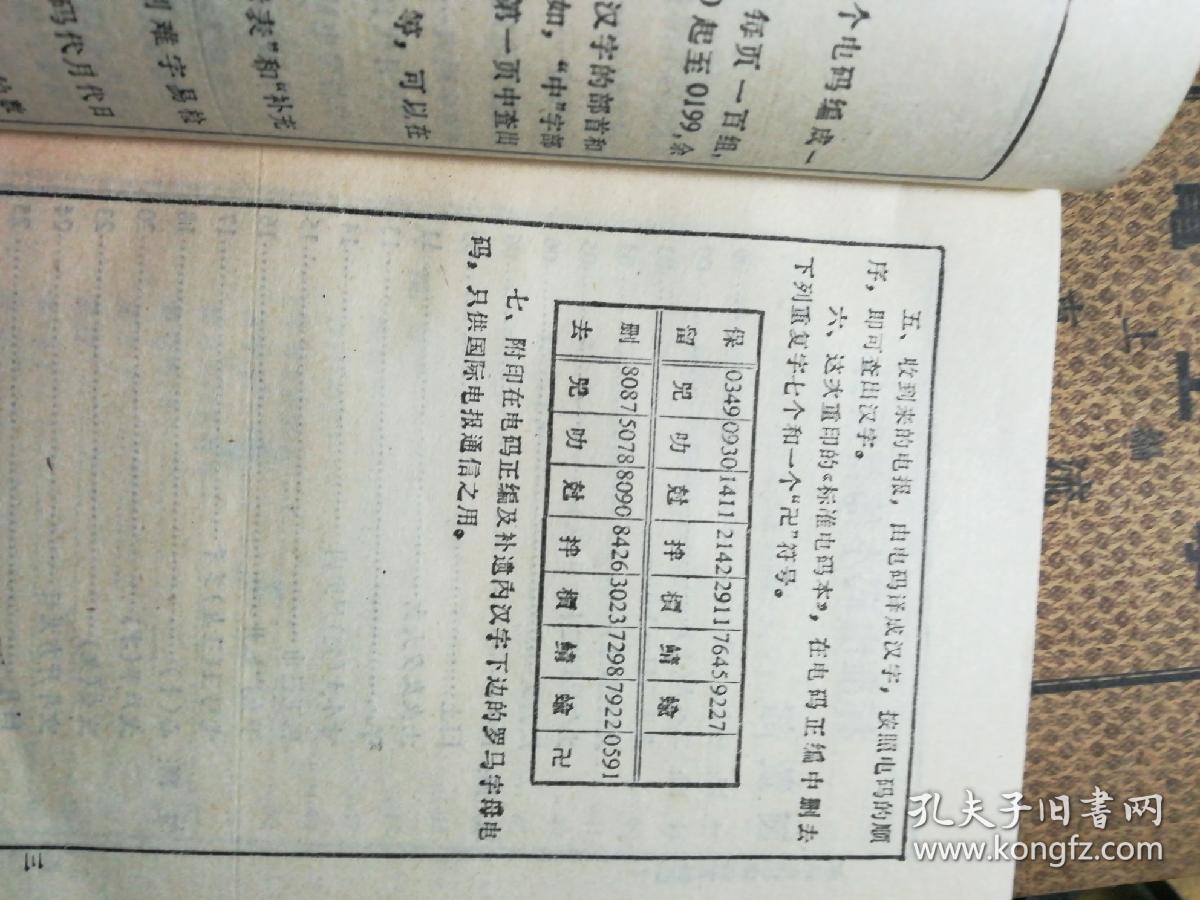 个电码编成一
每页一百组,
0起至0199,余
汉字的部首和
如,“中”字部
第一页中查出
等,可以在
表”和“补充
到难字易检
码代月代日
五、收到来的电报,由电码译成汉字,按照电码的顺
序,即可查出汉字。
六、这次重印的《标准电码本》,在电码正编中删去
下列重复字七个和一个“卍”符号。
保留 0349 0930 1411 2142 2911 7645 9227
兕 叻 尅 挣 槚 鲭
删去 8087 5078 8090 8426 3023 7298 7922 0591
兕 叻 尅 挣 槚 鲭 卍
七、附印在电码正编及补遗内汉字下边的罗马字母电
码,只供国际电报通信之用。
三
上
孔夫子旧书网
www.kongfz.com